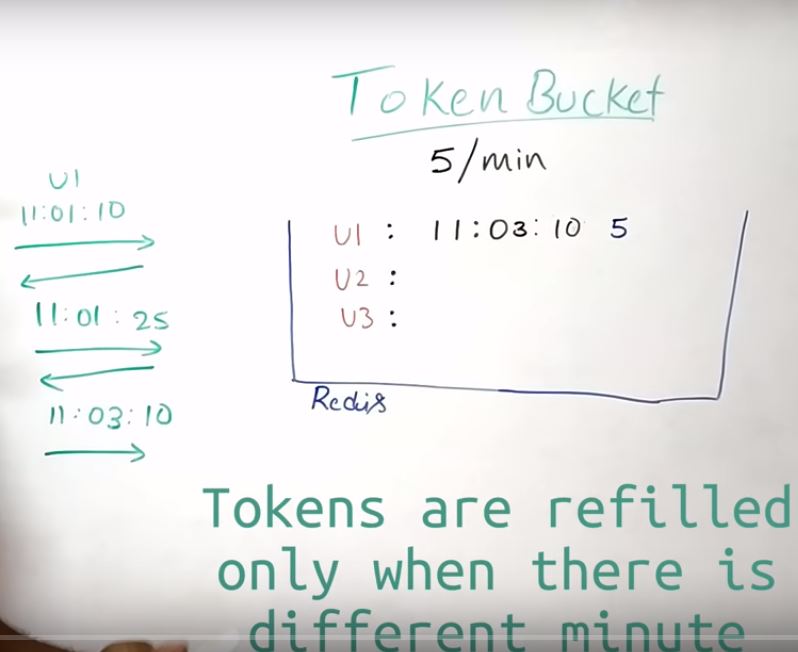 Token Bucket
5/min
U1
11:01:10
11:01:25
11:03:10
U1 : 11:03:10 5
U2 :
U3 :
Redis
Tokens are refilled
only when there is
different minute